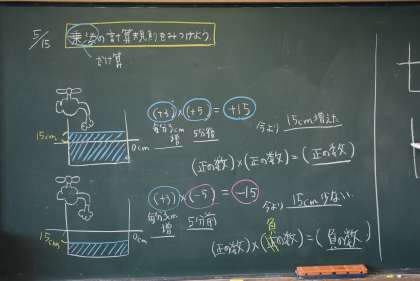 5/15
乗法の計算規則をみつけよう
かけ算
(+3)×(+5)=+15
毎分3cm増 5分後
今より 15cm増えた
15cm
0cm
(正の数)×(正の数)=(正の数)
(+3)×(-5)=-15
毎分3cm増 5分前
今より 15cm少ない
15cm
0cm
(正の数)×(負の数)=(負の数)